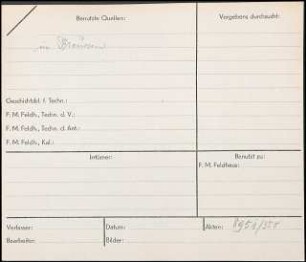 Benutzte Quellen:
Vergebens durchsucht:
in
Geschichtsbl. f. Techn.:
F. M. Feldh., Techn. d. V.:
F. M. Feldh., Techn. d. Ant.:
F. M. Feldh., Kal.:
Irrtümer:
Benutzt zu:
F. M. Feldhaus:
Verfasser:
Datum:
Akten:
Bearbeiter:
Bilder: